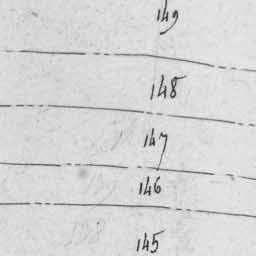 149
148
147
146
145